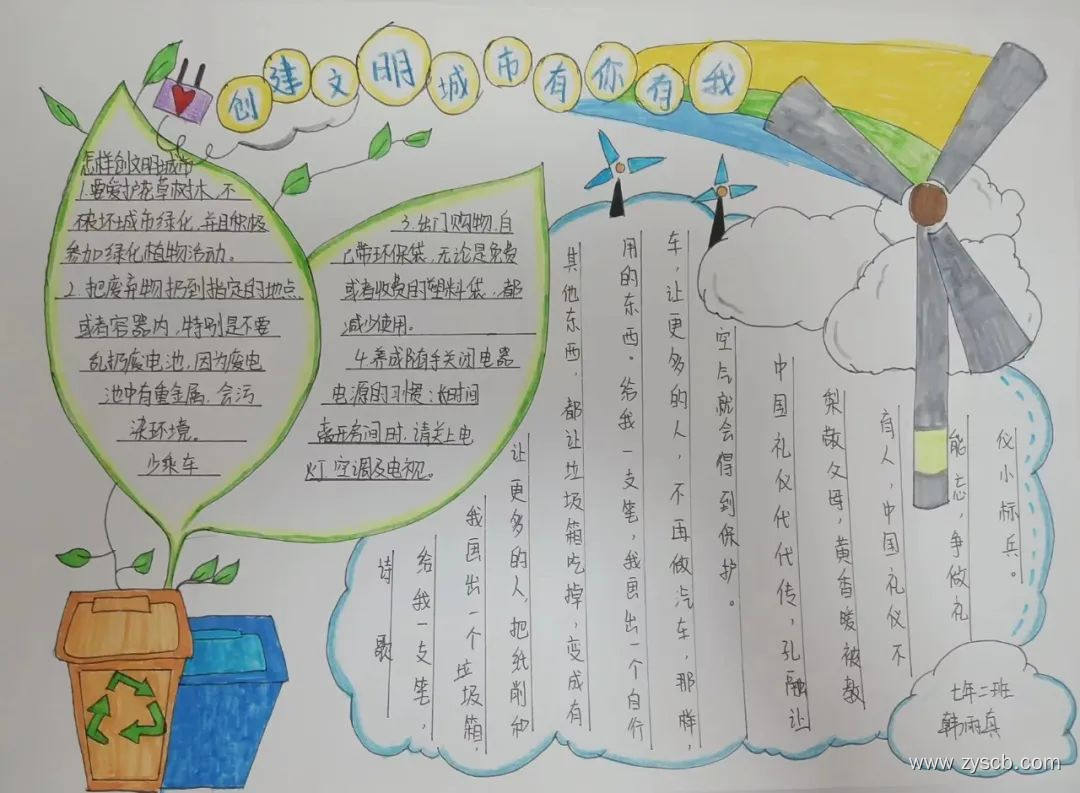 创建文明城市有你有我
怎样创文明城市
1.要爱护花草树木,不
破坏城市绿化,并且积极
参加绿化植物活动。
2.把废弃物扔到指定的地点
或者容器内,特别是不要
乱扔废电池,因为废电
池中有重金属,会污
染环境。
少乘车
3.出门购物,自
己带环保袋,无论是免费
或者收费的塑料袋,都
减少使用。
4.养成随手关闭电器
电源的习惯;长时间
离开房间时,请关上电
灯空调及电视。
诗歌
给我一支笔,
我画出一个垃圾箱,
让更多的人,把纸削和
其他东西,都让垃圾箱吃掉,变成有
用的东西。给我一支笔,我画出一个自行
车,让更多的人,不再做汽车,那样,
空气就会得到保护。
中国礼仪代代传,孔融让
梨敬父母,黄香暖被教
育人,中国礼仪不
能忘,争做礼
仪小标兵。
七年二班
韩雨真
www.zyscb.com